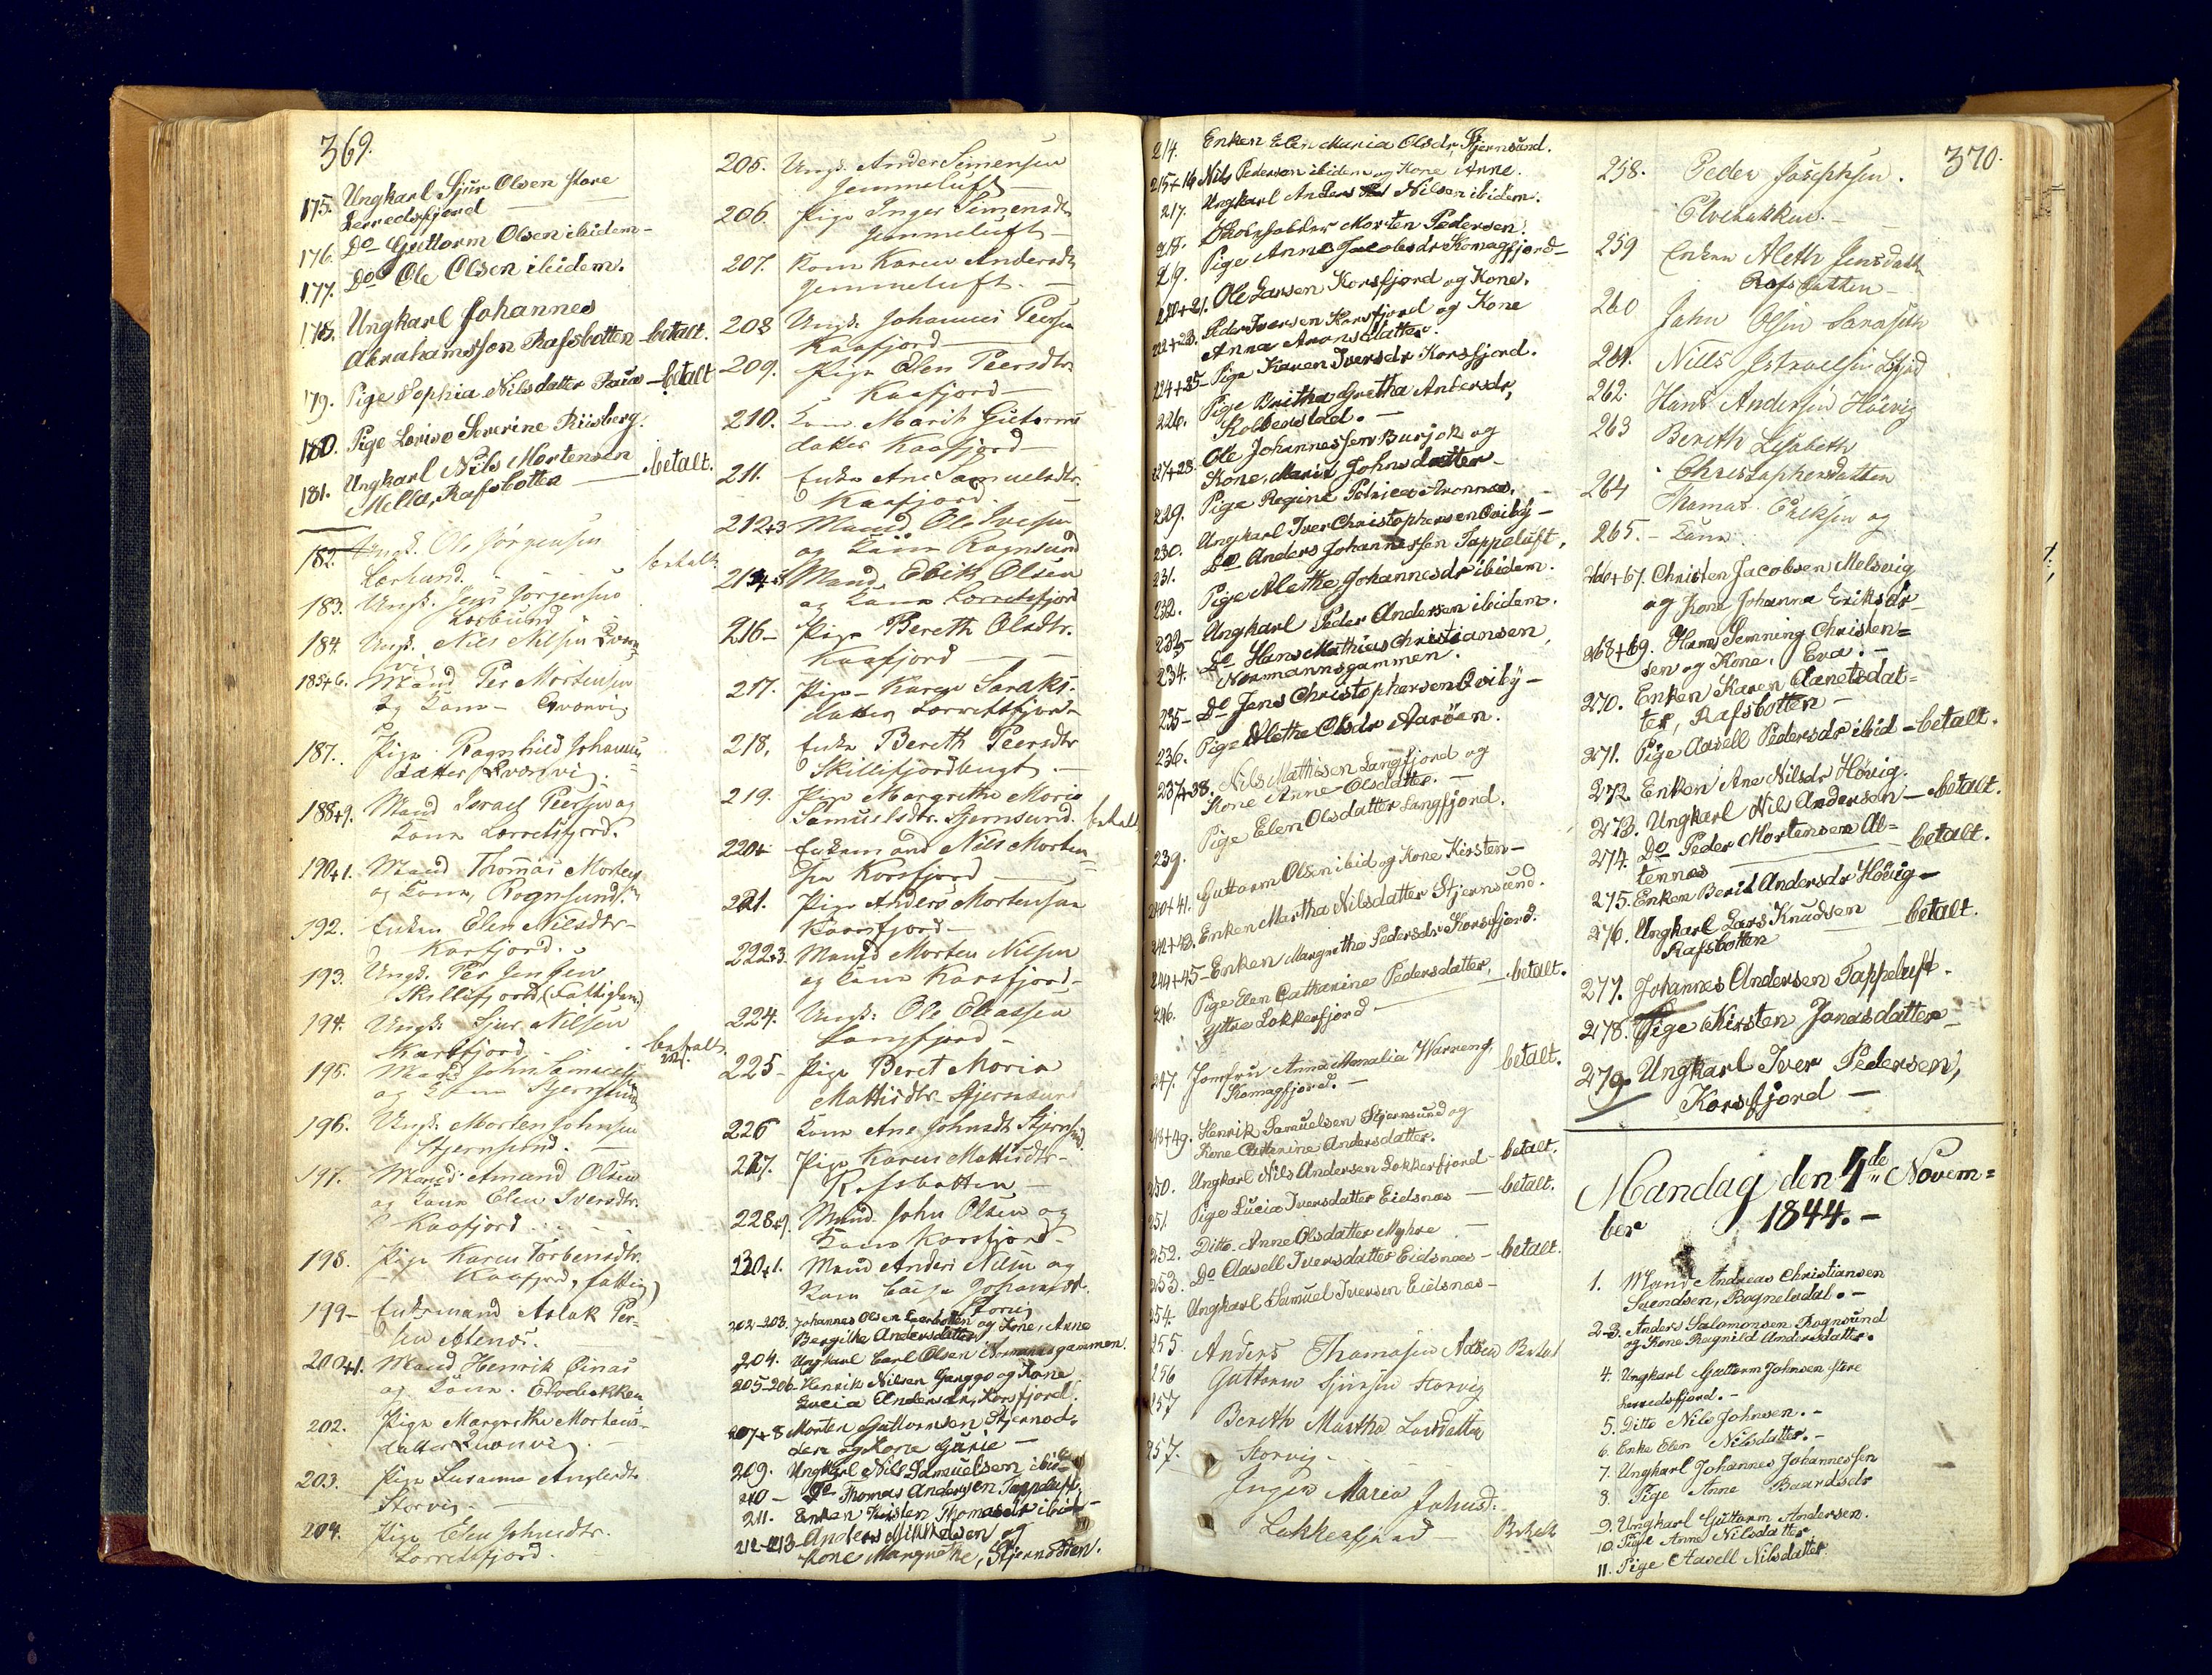 369.
175. Ungkarl Sjur Olsen Store
Lerredsfjord
176. Do Guttorm Olsen ibidem -
177. Do Ole Olsen ibidem.
178. Ungkarl Johannes
Abrahamsson Rafsbotten - betalt.
179. Pige Sophia Nilsdatter - betalt
180. Pige Lovise Severine Riisberg.
181. Ungkarl Nils Mortensen
Mella, Rafsbotten - betalt.
182. Ungk. Ole Jörgensen betalt
183. Ungk. Jens Jörgensen
184. Ungk. Nils Nilsen
185+6. Mand Per Mortensen
og Kone - Qvænvig
187. Pige Ragnhild Johannes
datter Qvænvig.
188+9. Mand Israel Peersen og
Kone Lerretsfjord.
190+1. Mand Thomas Morten
og Kone, Rognsund.
192. Enken Elen Nilsdtr -
Kaafjord.
193. Ungk. Per Jensen
Skillifjord (Fattiglem)
194. Ungk. Sjur Nilsen
Korsfjord betalt
195. Mand John Samuels
og Kone Stjernsund
196. Ungk. Morten Johnsen
Stjernsund.
197. Mand Amund Olsen
og Kone Elen Iversdtr.
Kaafjord
198. Pige Karen Torbensdtr.
Kaafjord, fattig)
199 - Enkemand Aslak Per-
sen Altenes.
200+1. Mand Henrik Pinas
og Kone. Elvebakken
202. Pige Margrethe Mortens-
datter Qvænvig
203. Pige Susanna
Storvig. -
204. Pige Elen Johnsdtr.
Lorretsfjord.
205. Ungk. Ander Simensen
Jemmeluft -
206. Pige Inger Simensdtr
Jemmeluft -
207. Kone Karen Andersdtr
Jemmeluft. -
208 Ungk. Johannes Peersen
Kaafjord
209. Pige Elen Peersdtr.
Kaafjord -
210. Kone Marit Guttorms
datter Kaafjord -
211. Enke Ane Samuelsdtr.
Kaafjord. -
212+3 Mand Ole Iversen
og Kone Rognsund
214+5 Mand Erik Olsen
og Kone Lorretsfjord
216 - Pige Bereth Olsdtr.
Kaafjord -
217. Pige - Karen
datter Lorretsfjord -
218. Enke Bereth Peersdtr
Skillifjordbugt -
219. Pige Margrethe Maria
Samuelsdtr. Stjernsund. betalt
220+ Enkemand Nils Morten-
sen Korsfjord
221. Pige Anders Mortensen
Kaarsfjord -
222+3. Mand Morten Nilsen
og Kone Korsfjord -
224. Ungk: Ole Eliassen
Langfjord -
225 - Pige Beret Maria
Mattisdtr. Stjernsund
226 Kone Ane Johnsdtr Stjernsund
227. Pige Karen Mattisdtr -
Rafsbotten -
228+9. Mand John Olsen og
Kone Korsfjord -
230+1. Mand Anders Nilsen og
Kone
Storvig
202-203. Johannes Olsen og Kone, Anne
Bergithe Andersdatter
204. Ungkarl Carl Olsen Normannsgammen.
205-206 Henrik Nilsen Ganggo og Kone
Lucia Andersdr, Korsfjord.
207+8 Morten Guttormsen
og Kone Gurie -
209. Ungkarl Nils Samuelsen ibid -
210 - Do Thomas Andersen Tappeluft,
211. Enken Kirsten Thomasdr ibid -
212-213 - Anders Mikkelsen og
Kone Margrethe, Stjernodden.
214. Enken Elen Maria Olsdr, Stjernsund.
215+16 Nils Pedersen ibidem og Kone Anne.
217. Ungkarl Anders Nilsen ibidem.
218. Skoleholder Morten Pedersen.
219. Pige Anne Jacobsdr Komagfjord -
220+21. Ole Larsen Korsfjord og Kone.
222+23. Peder Iversen Korsfjord og Kone
Anna Aronsdatter.
224+25 - Pige Karen Iversdr Korsfjord.
226. Pige Britha Gretha Andersdr,
-
227+28. Ole Johannessen Burjok og
Kone, Marit Johnsdatter -
229. Pige Regine Petrica Aronnæs. -
230. Ungkarl Iver Christophersen Qviby -
231. Do Anders Johannessen Tappeluft,
232. Pige Alethe Johannesdr ibidem.
233 - Ungkarl Peder Andersen ibidem.
234. Do Hans Mathias Christiansen,
Normannsgammen.
235 - Do Jens Christophersen Qviby -
236. Pige Alethe Olsdr Aarøen.
237+38. Nils Mathisen Langfjord og
Kone Anne Olsdatter. -
239. Pige Elen Olsdatter Langfjord.
240+41. Guttorm Olsen ibid og Kone Kirsten -
242+43. Enken Martha Nilsdatter Stjernsund.
244+45 - Enken Margrethe Pedersdr Korsfjord.
246. Pige Elen Catharine Pedersdatter, - betalt.
Yttre Lokkerfjord -
247. Jomfru Anna Amalia Wareng, betalt.
Komagfjord. -
248+49. Henrik Samuelsen Stjernsund og
Kone Catharine Andersdatter.
250. Ungkarl Nils Andersen Lokkerfjord - betalt.
251. Pige Lucia Iversdatter Eidsnæs - betalt.
252. Ditto Anne Olsdatter Myhre -
253. Do Aasell Iversdatter Eidsnæs - betalt.
254. Ungkarl Samuel Iversen Eidsnæs -
255 Anders Thomasen Betalt
256 Guttorm Sjursen Storvig
257 Bereth Martha Larsdatter
257. Storvig -
Inger Maria Johnsd:
Lokkerfjord - Betalt
370.
258. Peder Josephsen.
Elvebakken. -
259 Enken Aleth Jensdatter
Rafsbotten -
260 John Olsen
261. Nills
262. Hans Andersen Höivig
263 Bereth Lisabeth
Christophersdatter
264 Thomas Eriksen og
265. - Kone.
266+67. Christen Jacobsen Melsvig
og Kone Johanna Eriksdr -
268+69. Hans Henning Christen=
sen og Kone, Eva. -
270. Enken Karen Aanetsdat=
ter, Rafsbotten -
271. Pige Aasell Pedersdr ibid - betalt.
272. Enken Ane Nilsdr Høvig.
273. Ungkarl Nils Andersen - betalt.
274. Do Peder Mortensen Al=
tennæs - betalt.
275. Enken Berit Andersdr Høvig -
276. Ungkarl Lars Knudsen betalt.
Rafsbotten
277. Johannes Andersen Tappeluft.
278. Pige Kirsten Jonasdatter -
279. Ungkarl Iver Pedersen,
Korsfjord -
Mandag den 4de Novem=
ber 1844. -
1. Mand Andreas Christiansen
Svendsen, Bognelvdal. -
2-3. Anders Salomonsen Rognsund
og Kone Ragnild Andersdatter.
4. Ungkarl Guttorm Johnsen Store
Lerredsfjord. -
5. Ditto Nils Johnsen. -
6. Enke Elen Nilsdatter. -
7. Ungkarl Johannes Johannessen
8. Pige Anne Baardsdr
9. Ungkarl Guttorm Andersen.
10. Pige Anne Nilsdatter
11. Pige Aasell Nilsdatter